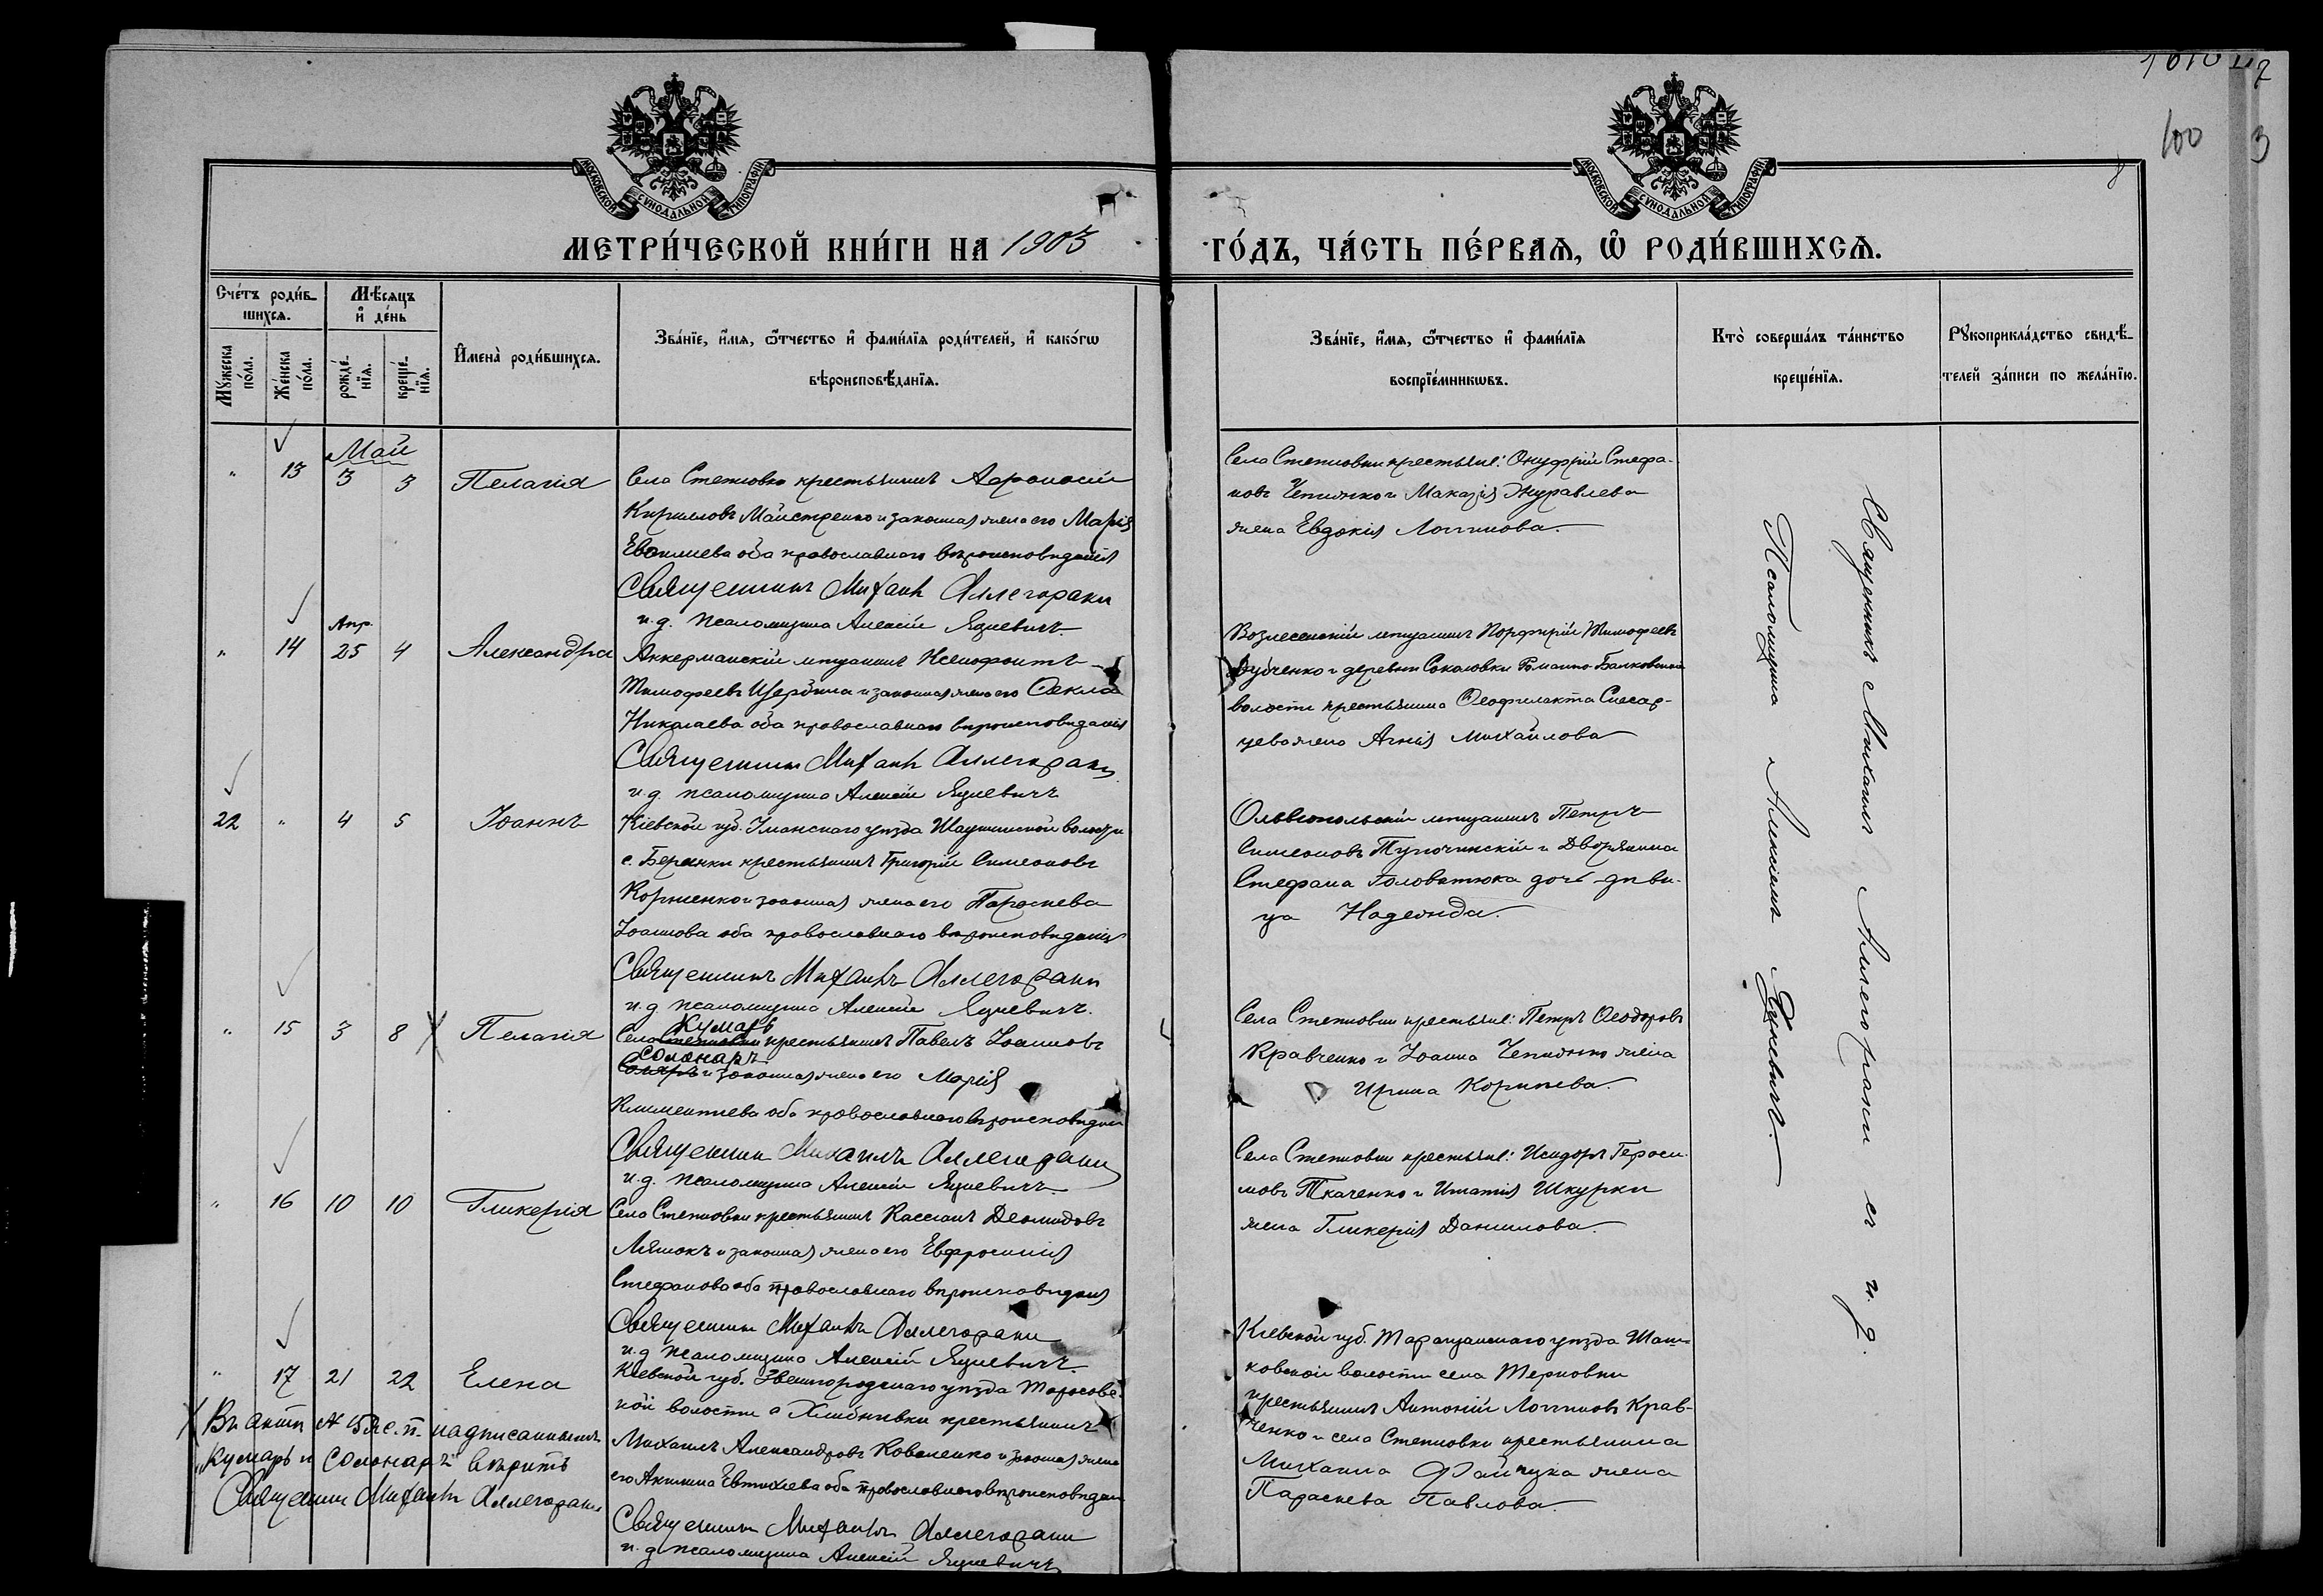 100
3
8
МОСКОВСКОЙ СѴНОДАЛЬНОЙ ТИПОГРАФІИ
МОСКОВСКОЙ СѴНОДАЛЬНОЙ ТИПОГРАФІИ
МЕТРИ́ЧЕСКОЙ КНИ́ГИ НА 1903
ГО́ДЪ, ЧА́СТЬ ПЕ́РВАѦ, Ѡ҆ РОДИ́ВШИХСѦ.
Сче́тъ роди́в-
шихсѧ.
Мꙋ́жеска
по́ла.
Же́нска
по́ла.
Мѣ́сѧцъ
и҆ де́нь
рожде́-
нїѧ.
креще́-
нїѧ.
И҆мена̀ роди́вшихсѧ.
Зва́нїе, и҆́мѧ, ѻ҆́тчество и҆ фами́лїѧ роди́телей, и҆ како́гѡ
вѣроисповѣ́данїѧ.
Зва́нїе, и҆́мѧ, ѻ҆́тчество и҆ фами́лїѧ
воспрїе́мникѡвъ.
Кто̀ соверша́лъ та́инство
креще́нїѧ.
Рꙋкоприкла́дство свидѣ́-
телей за́писи по жела́нїю.
Май
" 13 3 3 Пелагія
Села Степковки крестьянинъ Афанасій
Кирилловъ Майстренко и законная жена его Марія
Евсилиева оба православнаго вѣроисповѣданія
Священникъ Михаилъ Аллегораки
и.д. псаломщика Алексій Яцкевичъ
Села Степковки крестьяне: Онуфрій Стефа-
новъ Чепижко и Макарія Журавлева
жена Евдокія Логгинова.
Апр.
" 14 25 4 Александра
Аккерманскій мѣщанинъ Ксенофонтъ
Тимофеевъ Щербина и законная жена его Ѳекла
Николаева оба православнаго вѣроисповѣданія
Священникъ Михаилъ Аллегораки
и.д. псаломщика Алексій Яцкевичъ
Вознесенскій мѣщанинъ Порфирій Тимофеевъ
Дубченко и деревни Соколовки Романо-Балковской
волости крестьянина Ѳеофилакта Слесар-
цева жена Агнія Михайлова
22 " 4 5 Іоаннъ
Кіевской губ. Уманскаго уѣзда волости
с. Березнки крестьянинъ Григорій Симеоновъ
Корніенко и законная жена его Параскева
Іоаннова оба православнаго вѣроисповѣданія
Священникъ Михаилъ Аллегораки
и.д. псаломщика Алексій Яцкевичъ.
Ольвіопольскій мѣщанинъ Петръ
Симеоновъ Тупочинскій и Дворянина
Стефана Головатюка дочь дѣви-
ца Надежда.
" 15 3 8 Пелагія
Кумаръ
Села Степковки крестьянинъ Павелъ Іоанновъ
Солонаръ
Соляръ и законная жена его Марія
Климентіева оба православнаго вѣроисповѣданія
Священникъ Михаилъ Аллегораки
и.д. псаломщика Алексій Яцкевичъ
Села Степковки крестьяне: Петръ Ѳеодоровъ
Кравченко и Іоанна Чепижко жена
Ирина Корнѣева.
" 16 10 10 Гликерія
Села Степковки крестьянинъ Кассіанъ Деомидовъ
Ляшокъ и законная жена его Евфросинія
Стефанова оба православнаго вѣроисповѣданія
Священникъ Михаилъ Аллегораки
и.д. псаломщика Алексій Яцкевичъ
Села Степковки крестьяне: Исидоръ Гераси-
мовъ Ткаченко и Игнатія Шкурки
жена Гликерія Данилова
" 17 21 22 Елена
Кіевской губ. Звенигородскаго уѣзда Тарасовс-
кой волости с. Хлибнивки крестьянинъ
Михаилъ Александровъ Коваленко и законная жена
его Акилина Евтихіева оба православнаго вѣроисповѣданія
Священникъ Михаилъ Аллегораки
и.д. псаломщика Алексій Яцкевичъ
Кіевской губ. Таращанскаго уѣзда
ковской волости села Терновки
крестьянинъ Антоній Логгиновъ Крав-
ченко и села Степковки крестьянина
Михаила Файчука жена
Параскева Павлова
Въ актѣ № 15 ж.п. надписанными:
„Кумаръ и Солонаръ" вѣрить
Священникъ Михаилъ Аллегораки
Священникъ Михаилъ Аллегораки съ и. д.
Псаломщика Алексіемъ Яцкевичъ.